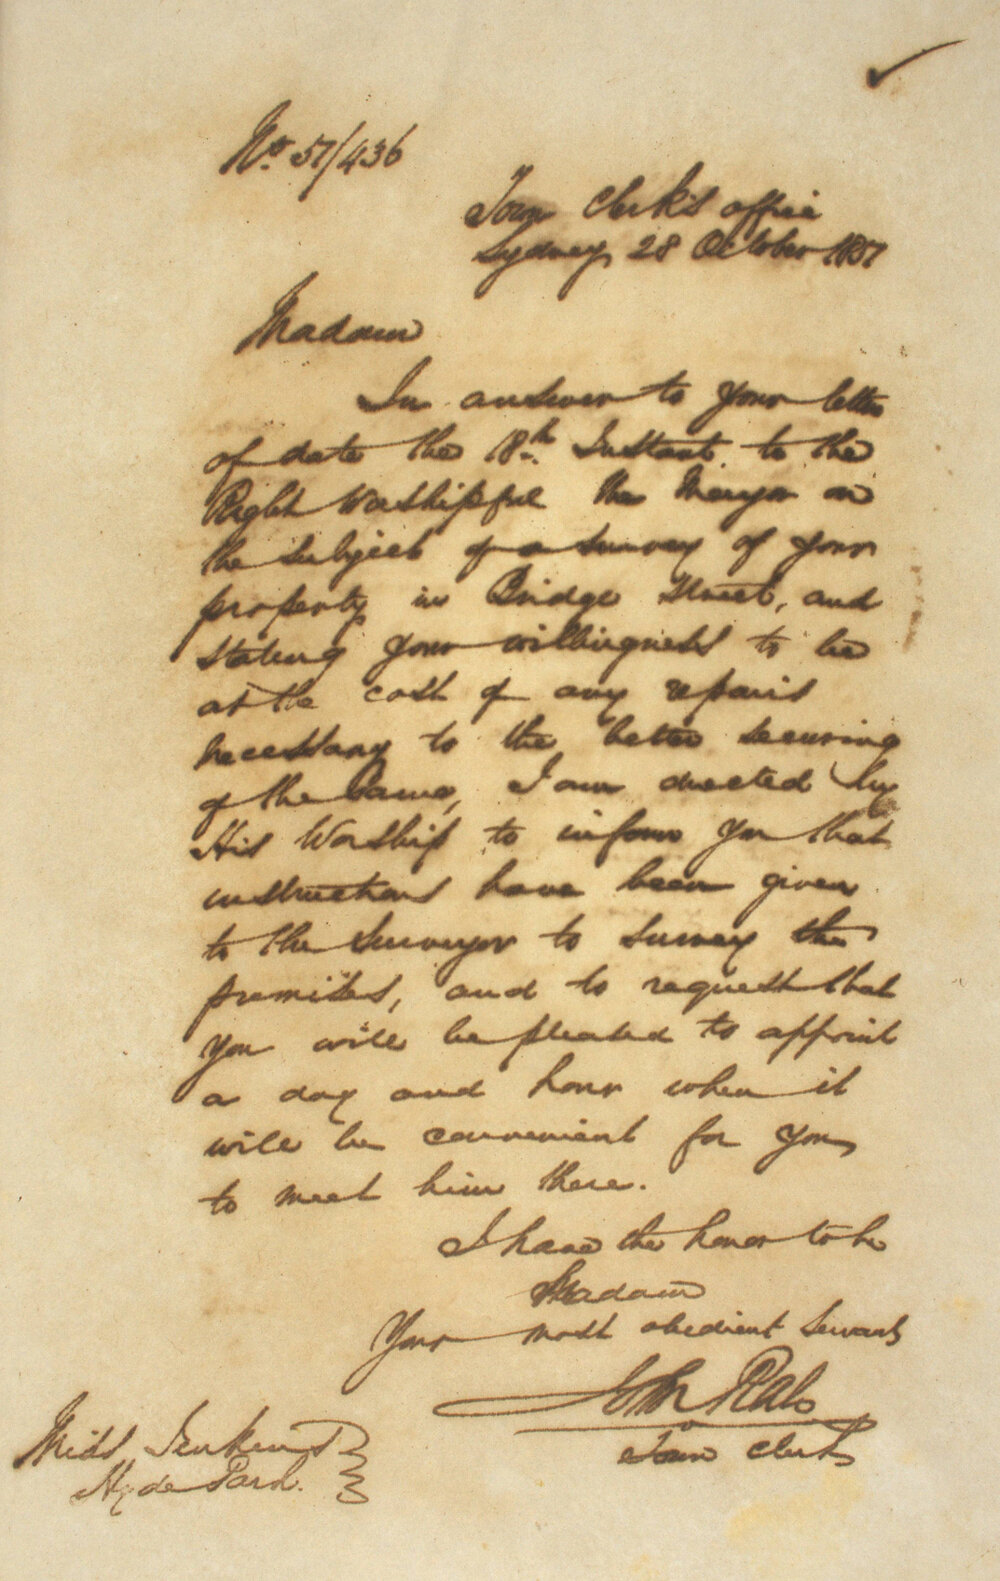 No. 57/436
Town Clerk's office
Sydney, 28 October 1857
Madam
In answer to your letter
of date the 18th Instant to the
Right Worshipful the Mayor on
the subject of a survey of your
property in Bridge Street, and
stating your willingness to be
at the cost of any repairs
necessary to the better securing
of the same, I am directed by
His Worship to inform you that
instructions have been given
to the Surveyor to survey the
premises, and to request that
you will be pleased to appoint
a day and hour when it
will be convenient for you
to meet him there.
I have the honor to be
Madam
Your most obedient Servant
John
Town Clerk
Miss Jenkins
Hyde Park.